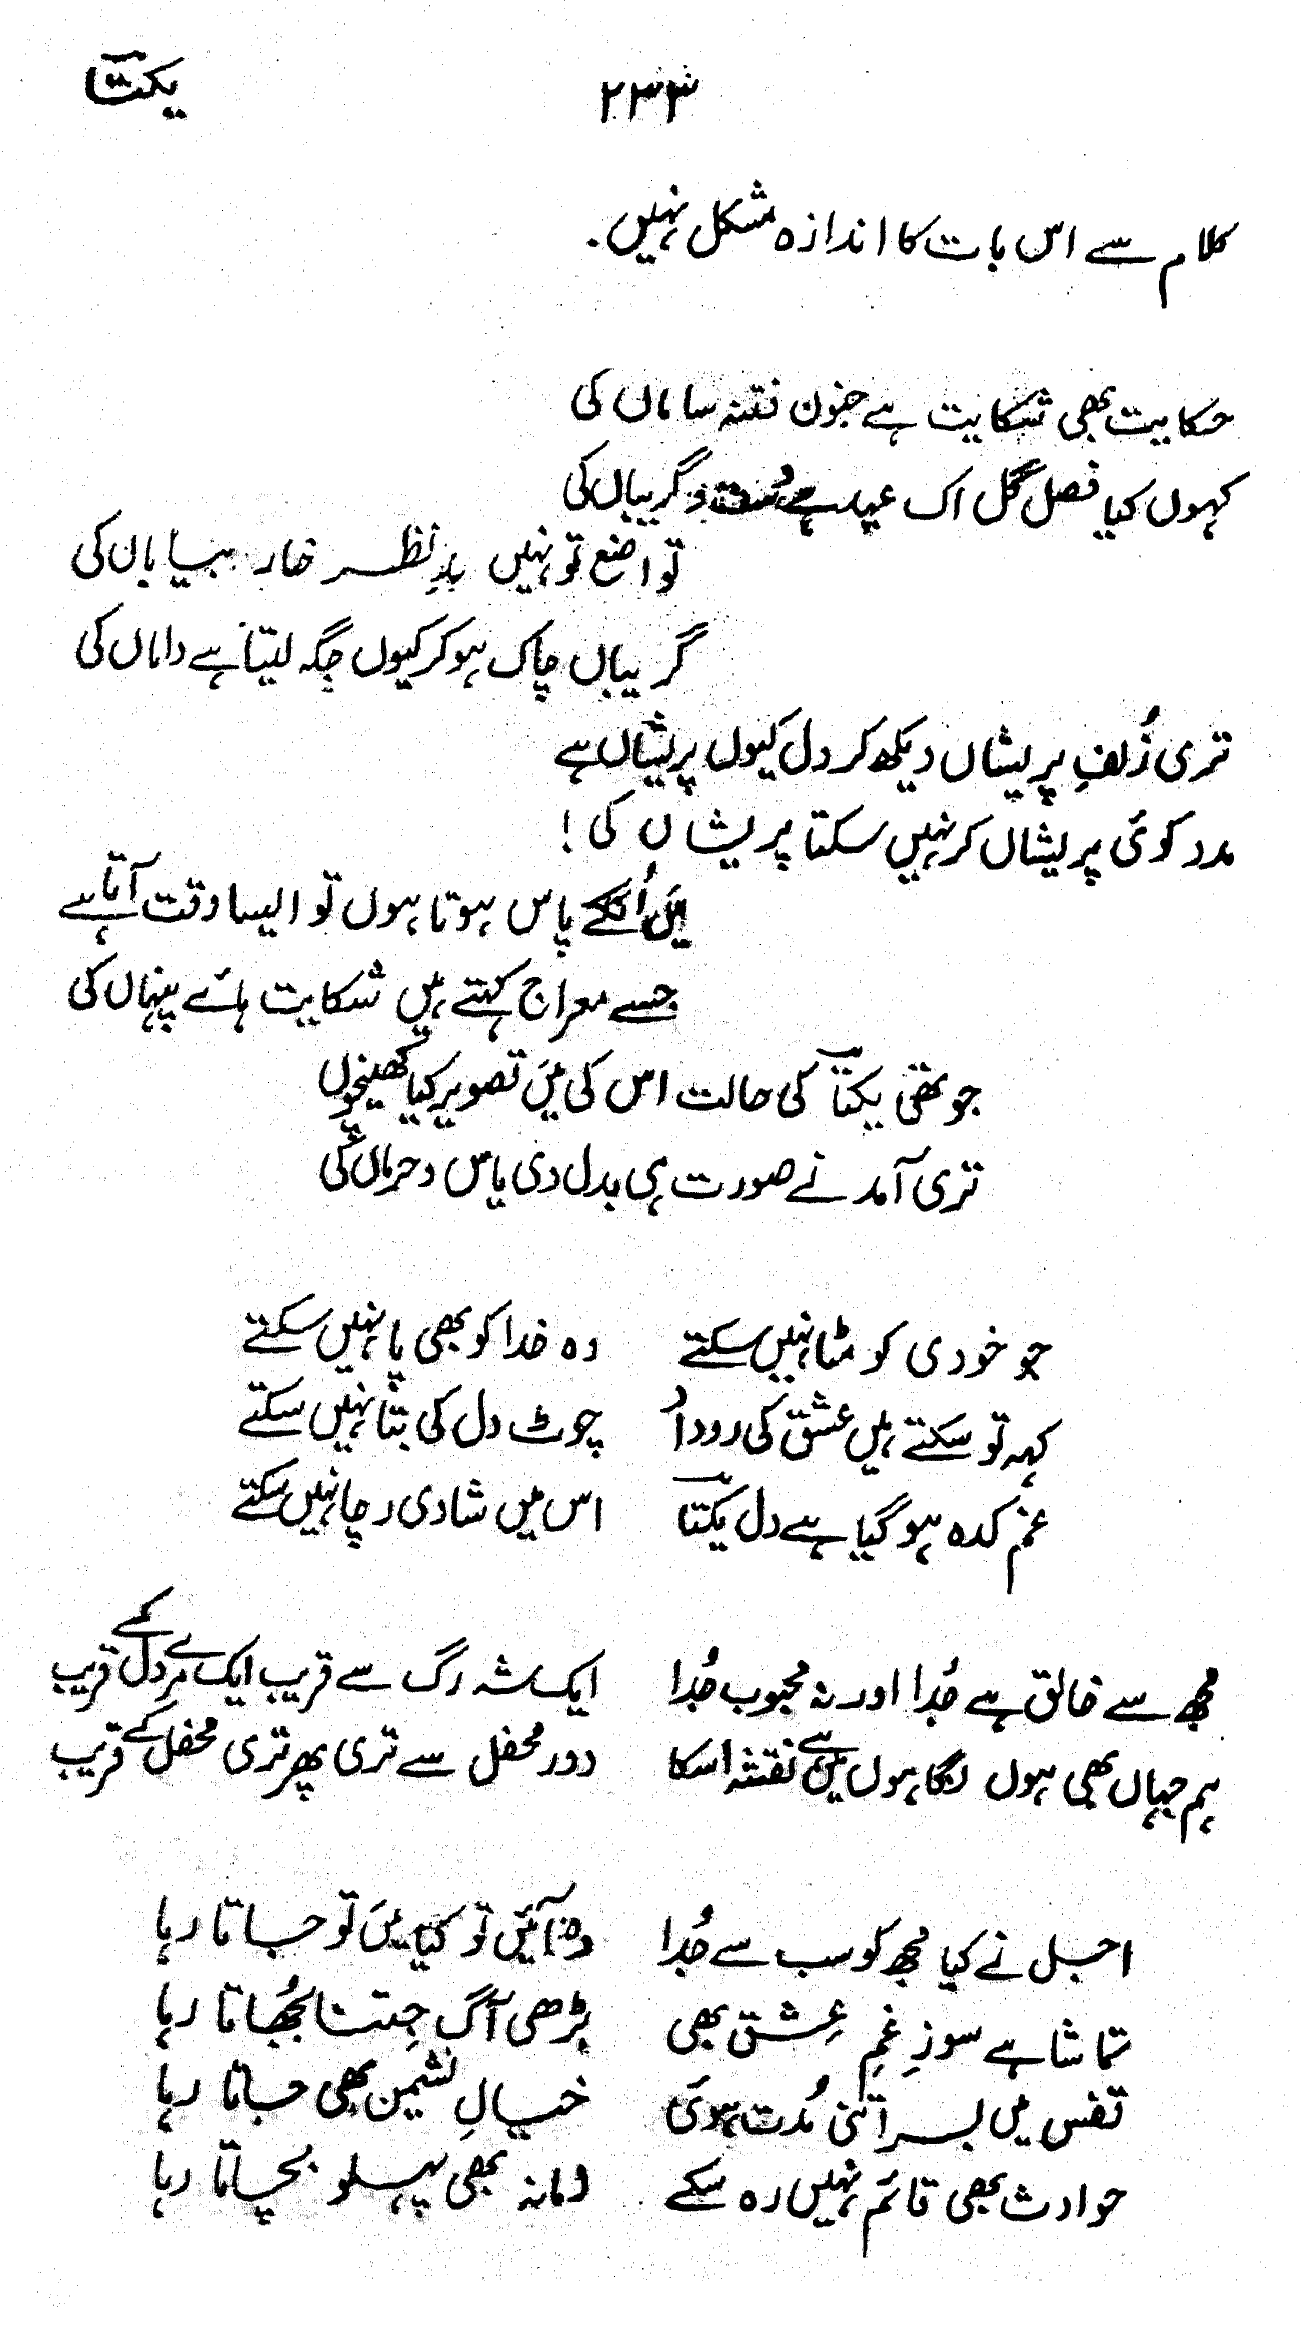 یکتا
۲۳۳
کلام سے اس بات کا اندازہ مشکل نہیں۔
حکایت بھی شکایت ہے جنون فتنہ ساماں کی
کہوں کیا فصل گل اک عید ہے گریباں کی
تواضع تو نہیں بارِ نظر خار بیاباں کی
گریباں چاک ہوکر کیوں جگہ لیتا ہے داماں کی
تری زُلفِ پریشاں دیکھ کر دل کیوں پریشاں ہے
مدد کوئی پریشاں کر نہیں سکتا پریشاں کی!
میں اُنکے پاس ہوتا ہوں تو ایسا وقت آتا ہے
جسے معراج کہتے ہیں شکایت ہائے پنہاں کی
جو تھی یکتا کی حالت اس کی میں تصویر کیا کھینچوں
تری آمد نے صورت ہی بدل دی یاس و حرماں کی
جو خودی کو مٹا نہیں سکتے وہ خدا کو بھی پا نہیں سکتے
کہہ تو سکتے ہیں عشق کی روداد چوٹ دل کی بتا نہیں سکتے
غم کدہ ہو گیا ہے دل یکتا اس میں شادی رچا نہیں سکتے
مجھ سے خالق ہے جُدا اور نہ محبوب جُدا ایک شہ رگ سے قریب ایک مرے دل کے قریب
ہم جہاں بھی ہوں نگاہوں میں ہے نقشہ اسکا دور محفل سے تری پھر تری محفل کے قریب
اجل نے کیا مجھ کو سب سے جُدا وہ آئیں تو کیا میں تو جاتا رہا
تماشا ہے سوزِ غمِ عِشق بھی بڑھی آگ جِتنا بُجھاتا رہا
قفس میں بسر اتنی مُدت ہوئی خیالِ نشیمن بھی جاتا رہا
حوادث بھی قائم نہیں رہ سکے زمانہ بھی پہلو بچاتا رہا